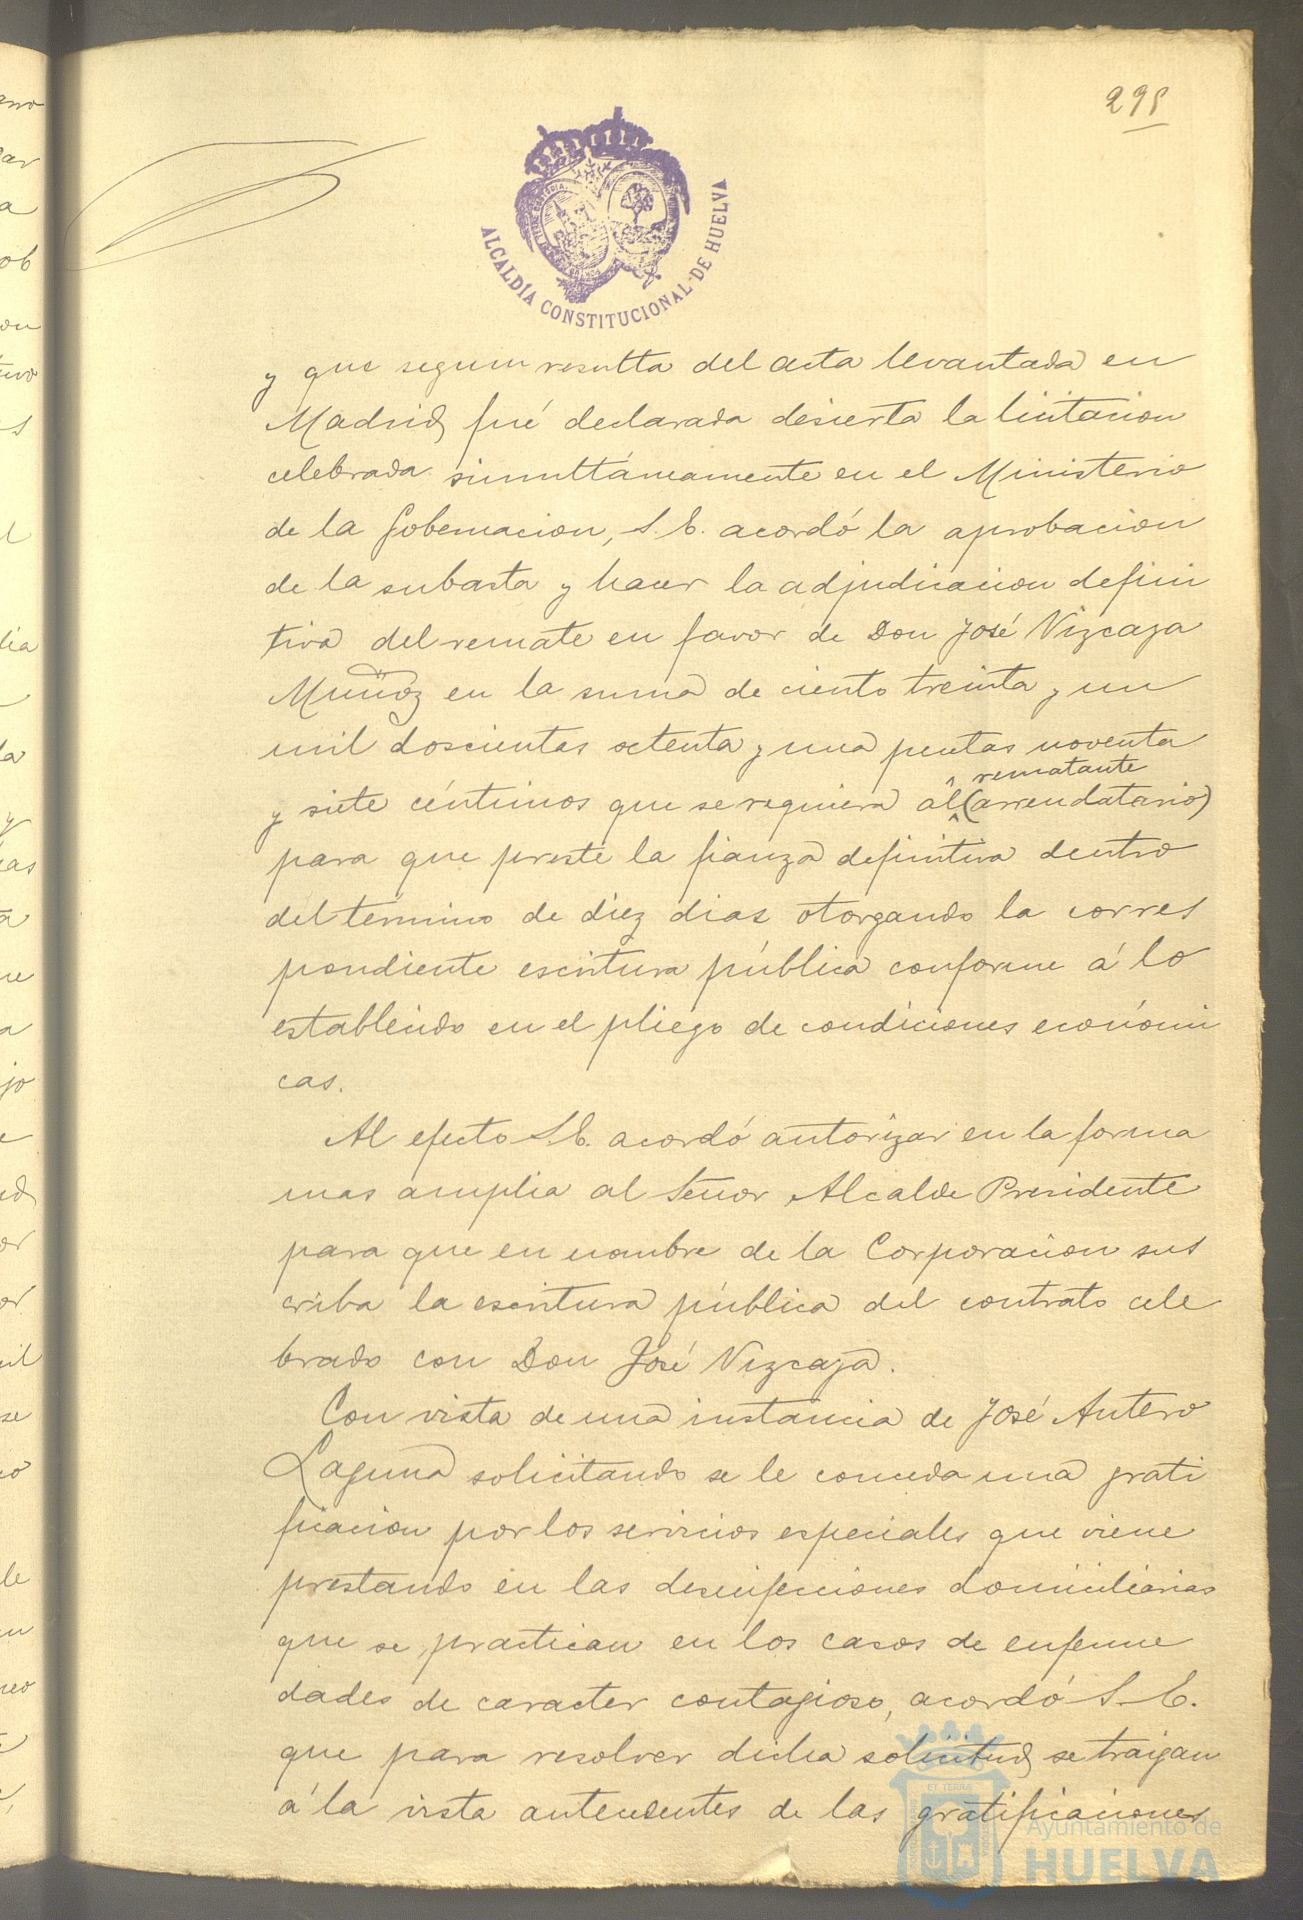 295
ALCALDÍA CONSTITUCIONAL DE HUELVA
y que segun resulta del acta levantada en
Madrid, fué declarada desierta la licitacion
celebrada simultáneamente en el Ministerio
de la Gobernacion, S. E. acordó la aprobacion
de la subasta y hacer la adjudicacion defini
tiva del remate en favor de Don José Vizcaya
Muñoz en la suma de ciento treinta y un
mil doscientas setenta y una pesetas noventa
rematante
y siete céntimos que se requiera al (arrendatario)
para que preste la fianza definitiva dentro
del término de diez dias otorgando la corres
pondiente escritura pública conforme á lo
establecido en el pliego de condiciones económi
cas.
Al efecto S. E. acordó autorizar en la forma
mas amplia al Señor Alcalde Presidente
para que en nombre de la Corporacion sus
criba la escritura pública del contrato cele
brado con Don José Vizcaya.
Con vista de una instancia de José Antero
Laguna solicitando se le conceda una grati
ficacion por los servicios especiales que viene
prestando en las desinfecciones domiciliarias
que se practican en los casos de enferme
dades de caracter contagioso, acordó S. E.
que para resolver dicha solicitud, se traigan
á la vista antecedentes de las gratificaciones
Ayuntamiento de
HUELVA